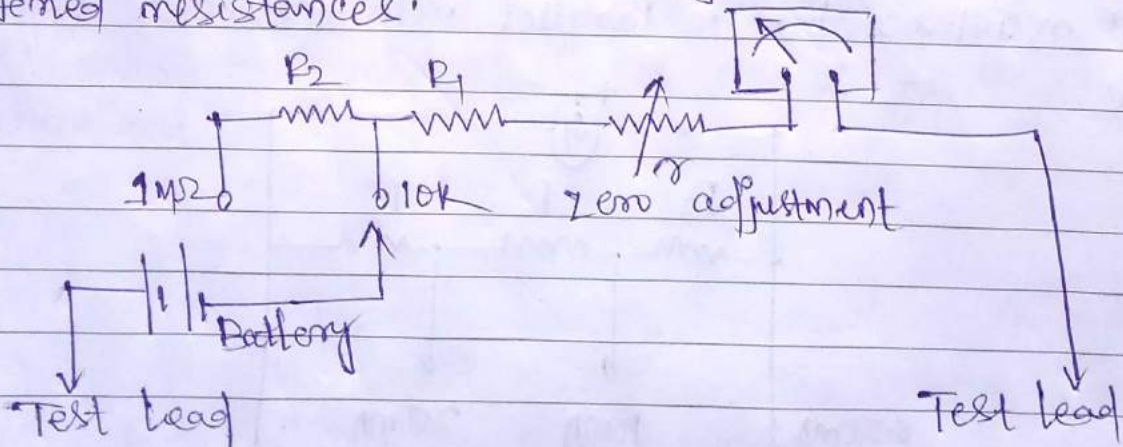 resistances.
R2 R1
1MΩ 10K r
zero adjustment
Battery
Test lead Test lead